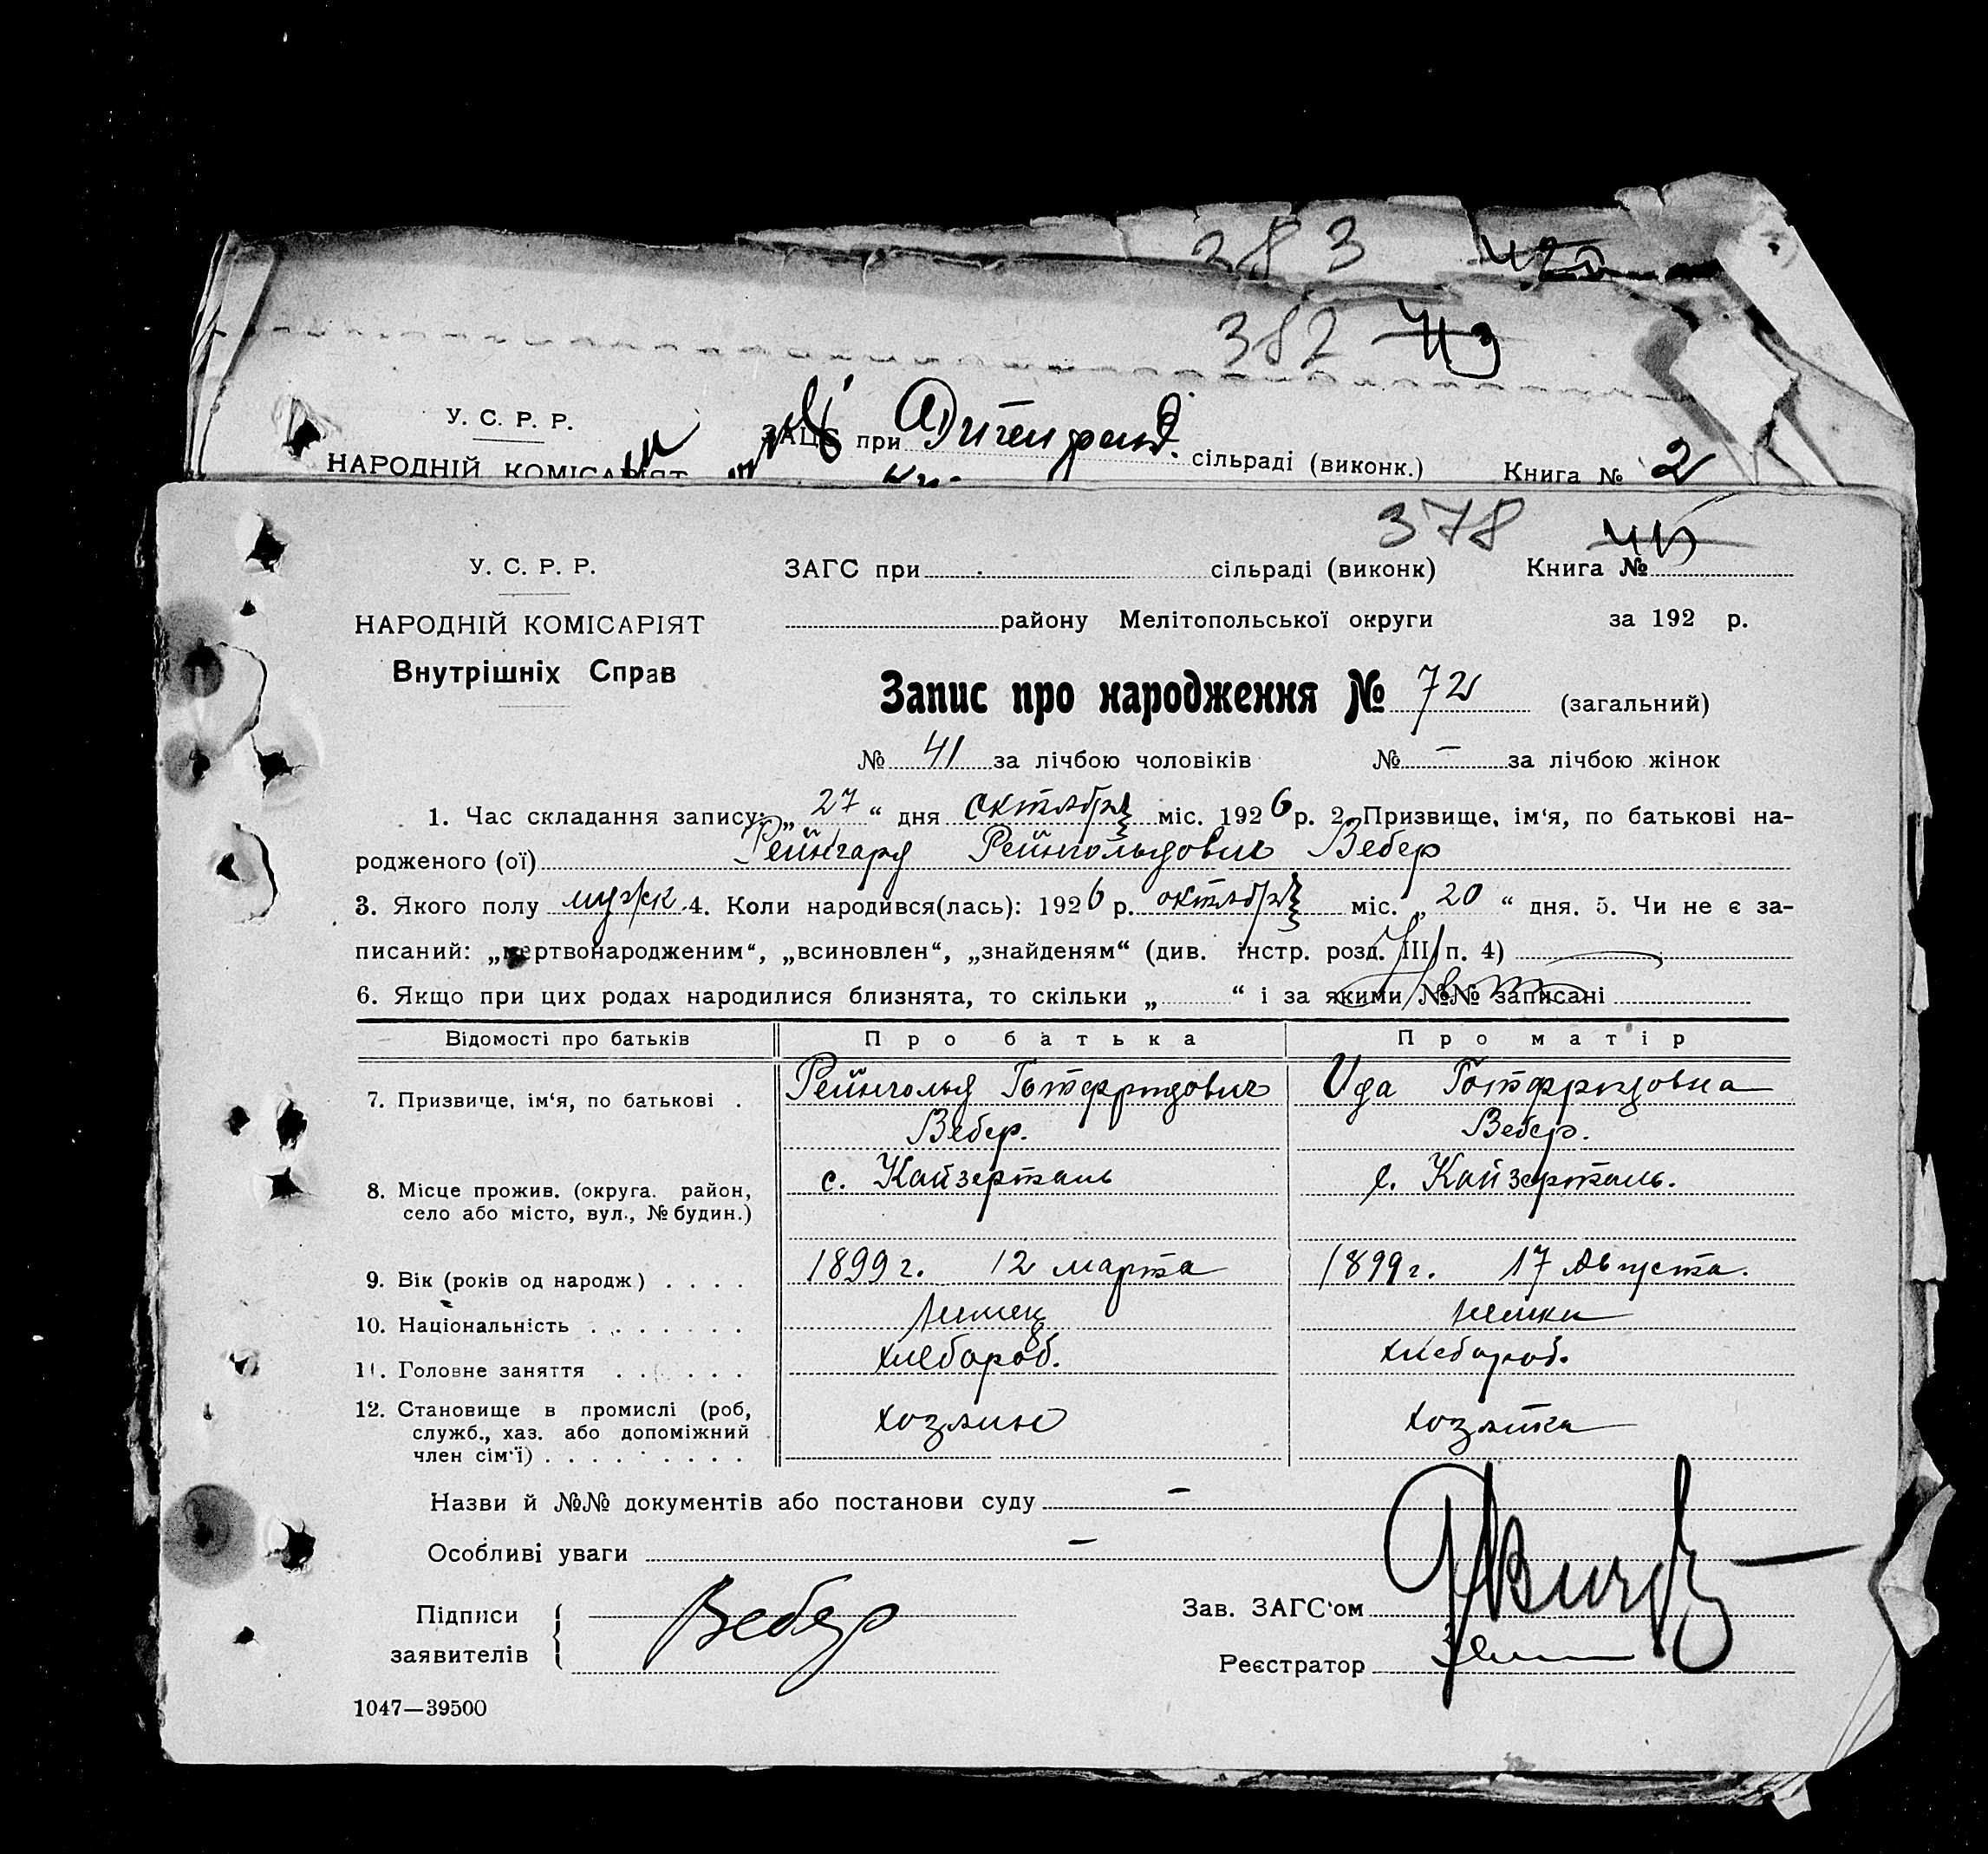 383
382 43
У. С. Р. Р.
ЗАЦС при сільраді (виконк.) Книга № 2
НАРОДНІЙ КОМІСАРІЯТ
378
У. С. Р. Р. ЗАГС при сільраді (виконк) Книга №
НАРОДНІЙ КОМІСАРІЯТ району Мелітопольської округи за 192 р.
Внутрішніх Справ
Запис про народження № 72 (загальний)
№ 41 за лічбою чоловіків № – за лічбою жінок
1. Час складання запису: „ 27 “ дня октября міс. 1926 р. 2. Призвище, ім‘я, по батькові на-
родженого (ої) Рейнгард Рейнгольдович Вебер
3. Якого полу мужк. 4. Коли народився(лась): 1926 р. октября міс. „ 20 “ дня. 5. Чи не є за-
писаний: „мертвонародженим“, „всиновлен“, „знайденям“ (див. інстр. розд. VIII п. 4)
6. Якщо при цих родах народилися близнята, то скільки „ “ і за якими №№ записані
Відомості про батьків Про батька Про матір
7. Призвище, ім‘я, по батькові . Рейнгольд Готфридович Ида Готфридовна
Вебер. Вебер.
8. Місце прожив. (округа. район, с. Кайзерталь с. Кайзерталь.
село або місто, вул., № будин.)
9. Вік (років од народж) . . . . 1899 г. 12 марта 1899 г. 17 Августа.
10. Національність . . . . . . . немец немка
11. Головне заняття . . . . . . хлебороб. хлебороб.
12. Становище в промислі (роб, хозяин хозяйка
служб., хаз. або допоміжний
член сім‘ї) . . . . . . . . .
Назви й №№ документів або постанови суду –
Особливі уваги –
Підписи Вебер Зав. ЗАГС‘ом
заявителів Реєстратор
1047—39500